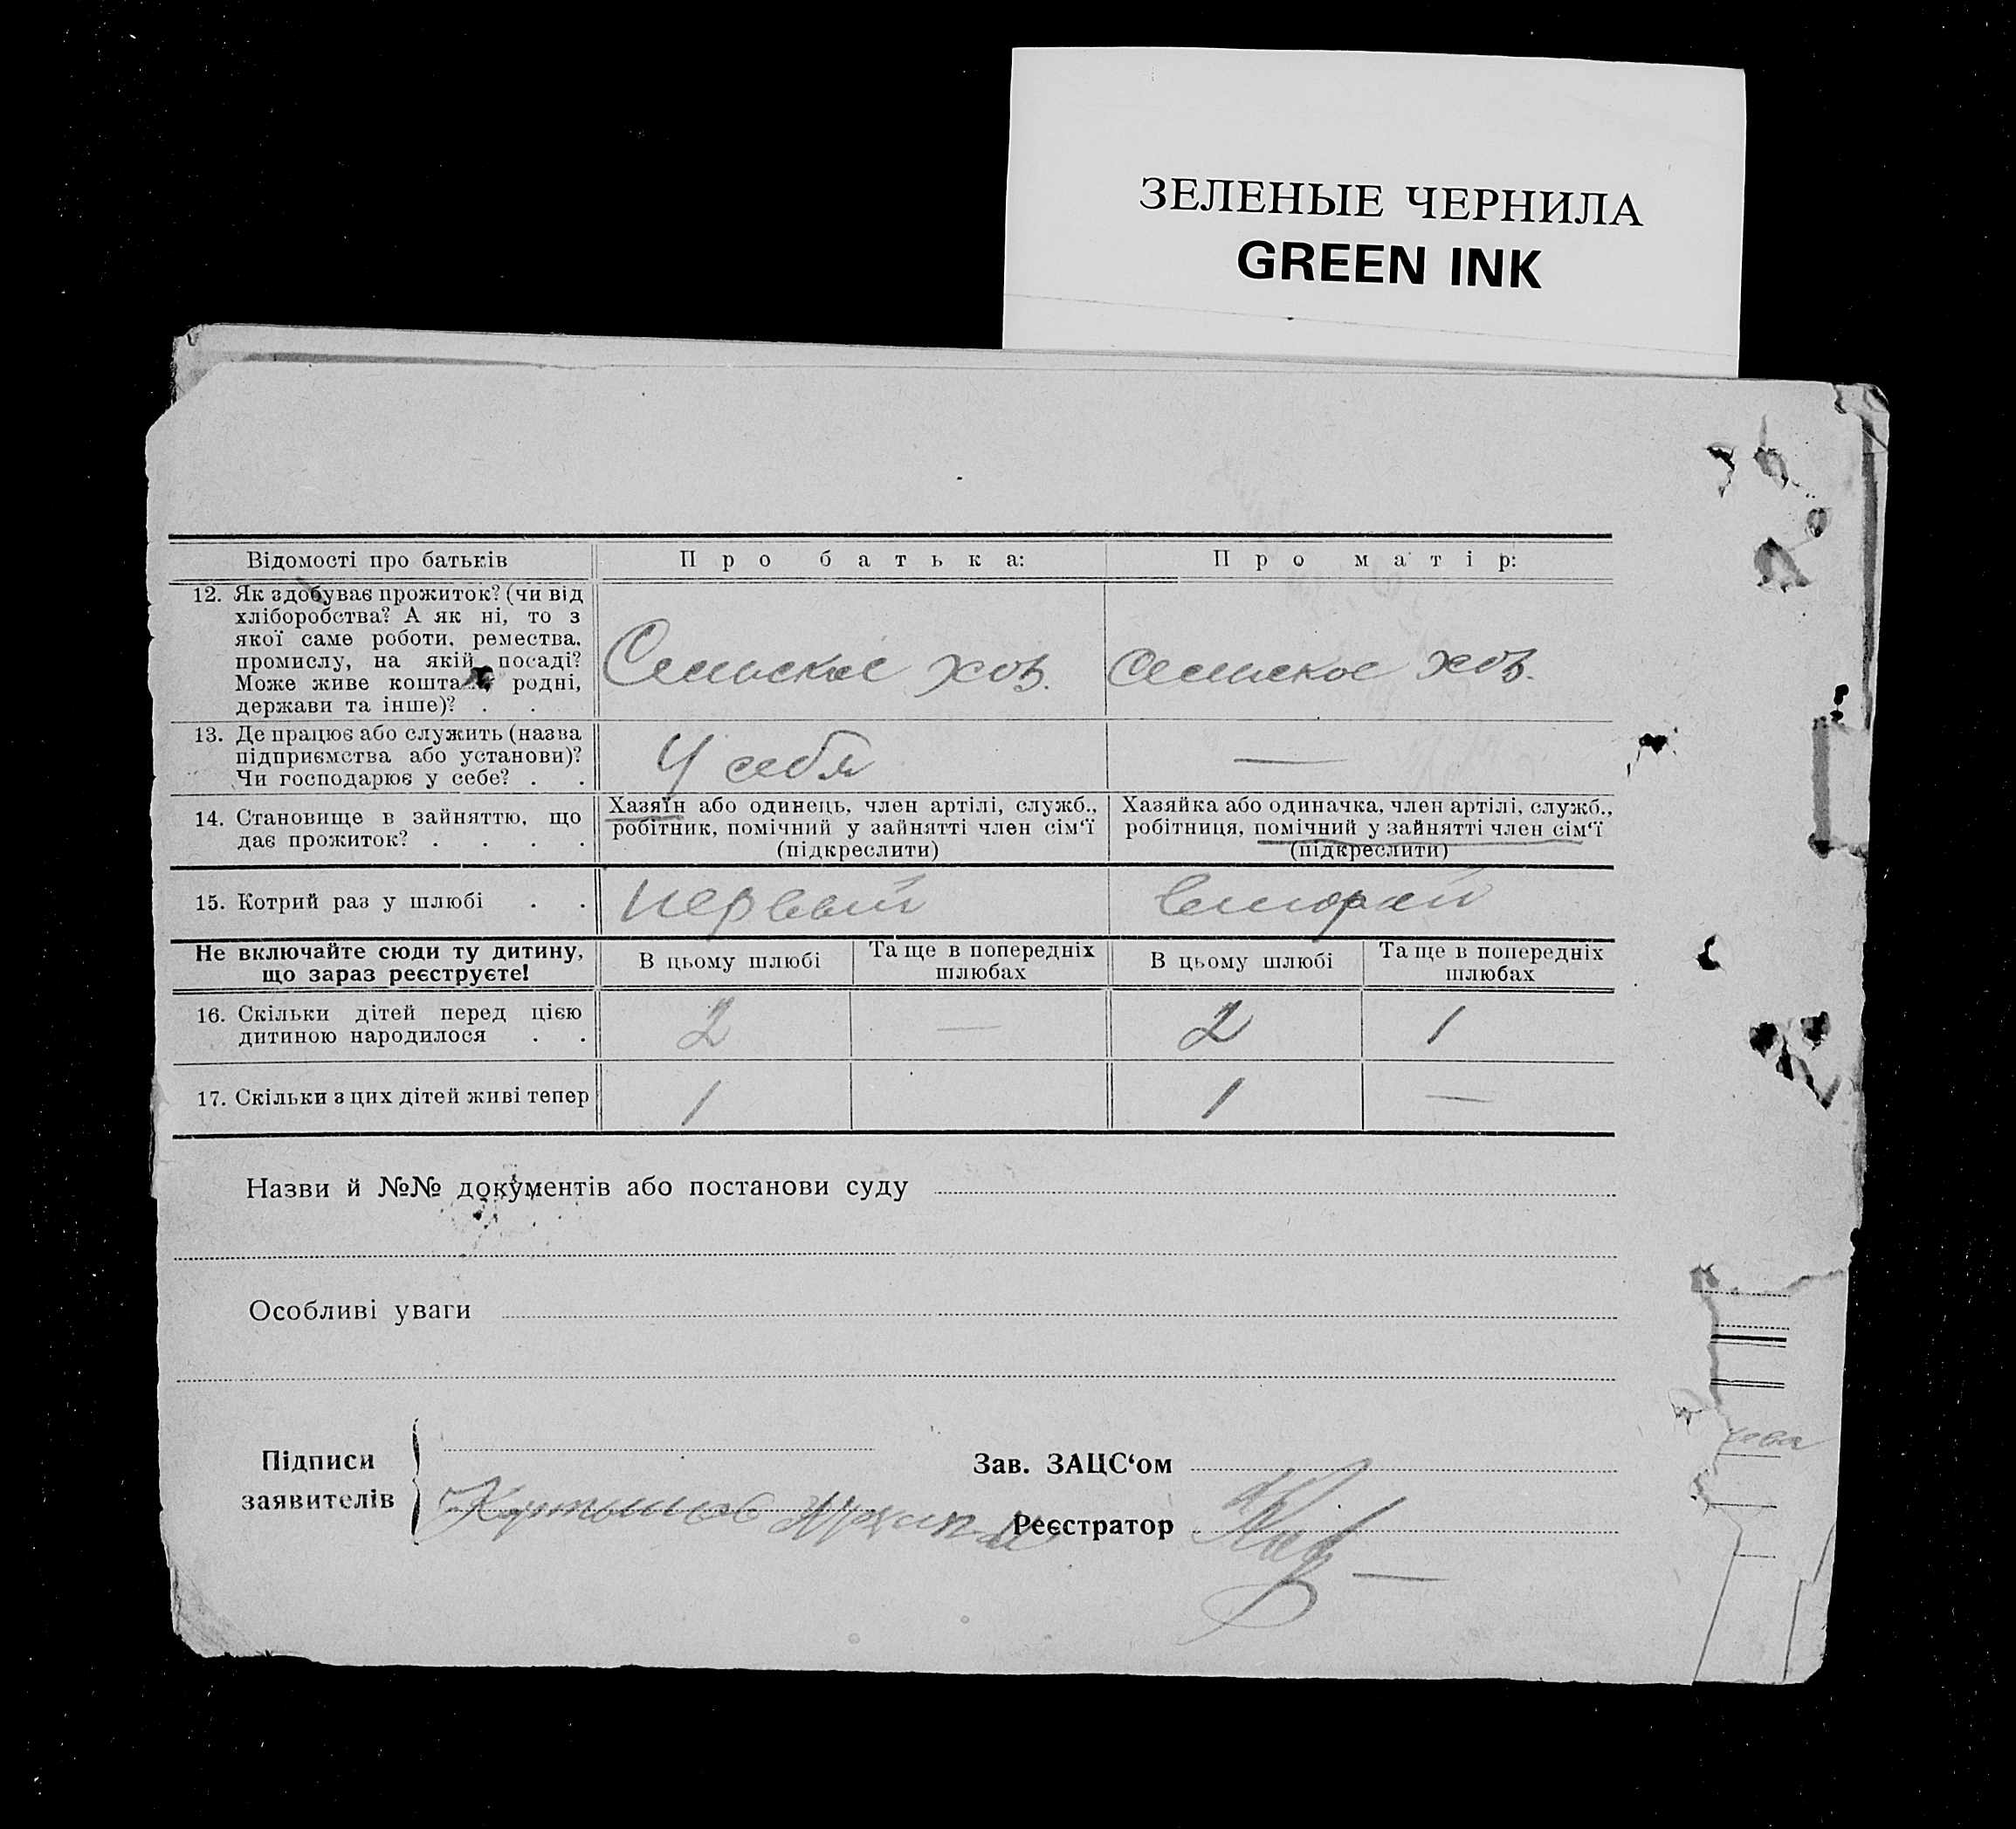 ЗЕЛЕНЫЕ ЧЕРНИЛА
GREEN INK
Відомості про батьків
Про батька:
Про матір:
12. Як здобуває прожиток? (чи від
хліборобства? А як ні, то з
якої саме роботи, ремества,
промислу, на якій посаді?
Може живе кошта родні,
держави та інше)? . .
Сельское хоз.
Сельское хоз.
13. Де працює або служить (назва
підприємства або установи)?
Чи господарює у себе? . .
У себя
—
14. Становище в зайняттю, що
дає прожиток? . . . .
Хазяїн або одинець, член артілі, служб.,
робітник, помічний у зайнятті член сім‘ї
(підкреслити)
Хазяйка або одиначка, член артілі, служб.,
робітниця, помічний у зайнятті член сім‘ї
(підкреслити)
15. Котрий раз у шлюбі . .
первый
второй
Не включайте сюди ту дитину,
що зараз реєструєте!
В цьому шлюбі
Та ще в попередніх
шлюбах
В цьому шлюбі
Та ще в попередніх
шлюбах
16. Скільки дітей перед цією
дитиною народилося . .
2
—
2
1
17. Скільки з цих дітей живі тепер
1
1
—
Назви й №№ документів або постанови суду
Особливі уваги
Підписи
заявителів
Зав. ЗАЦС‘ом
Реєстратор